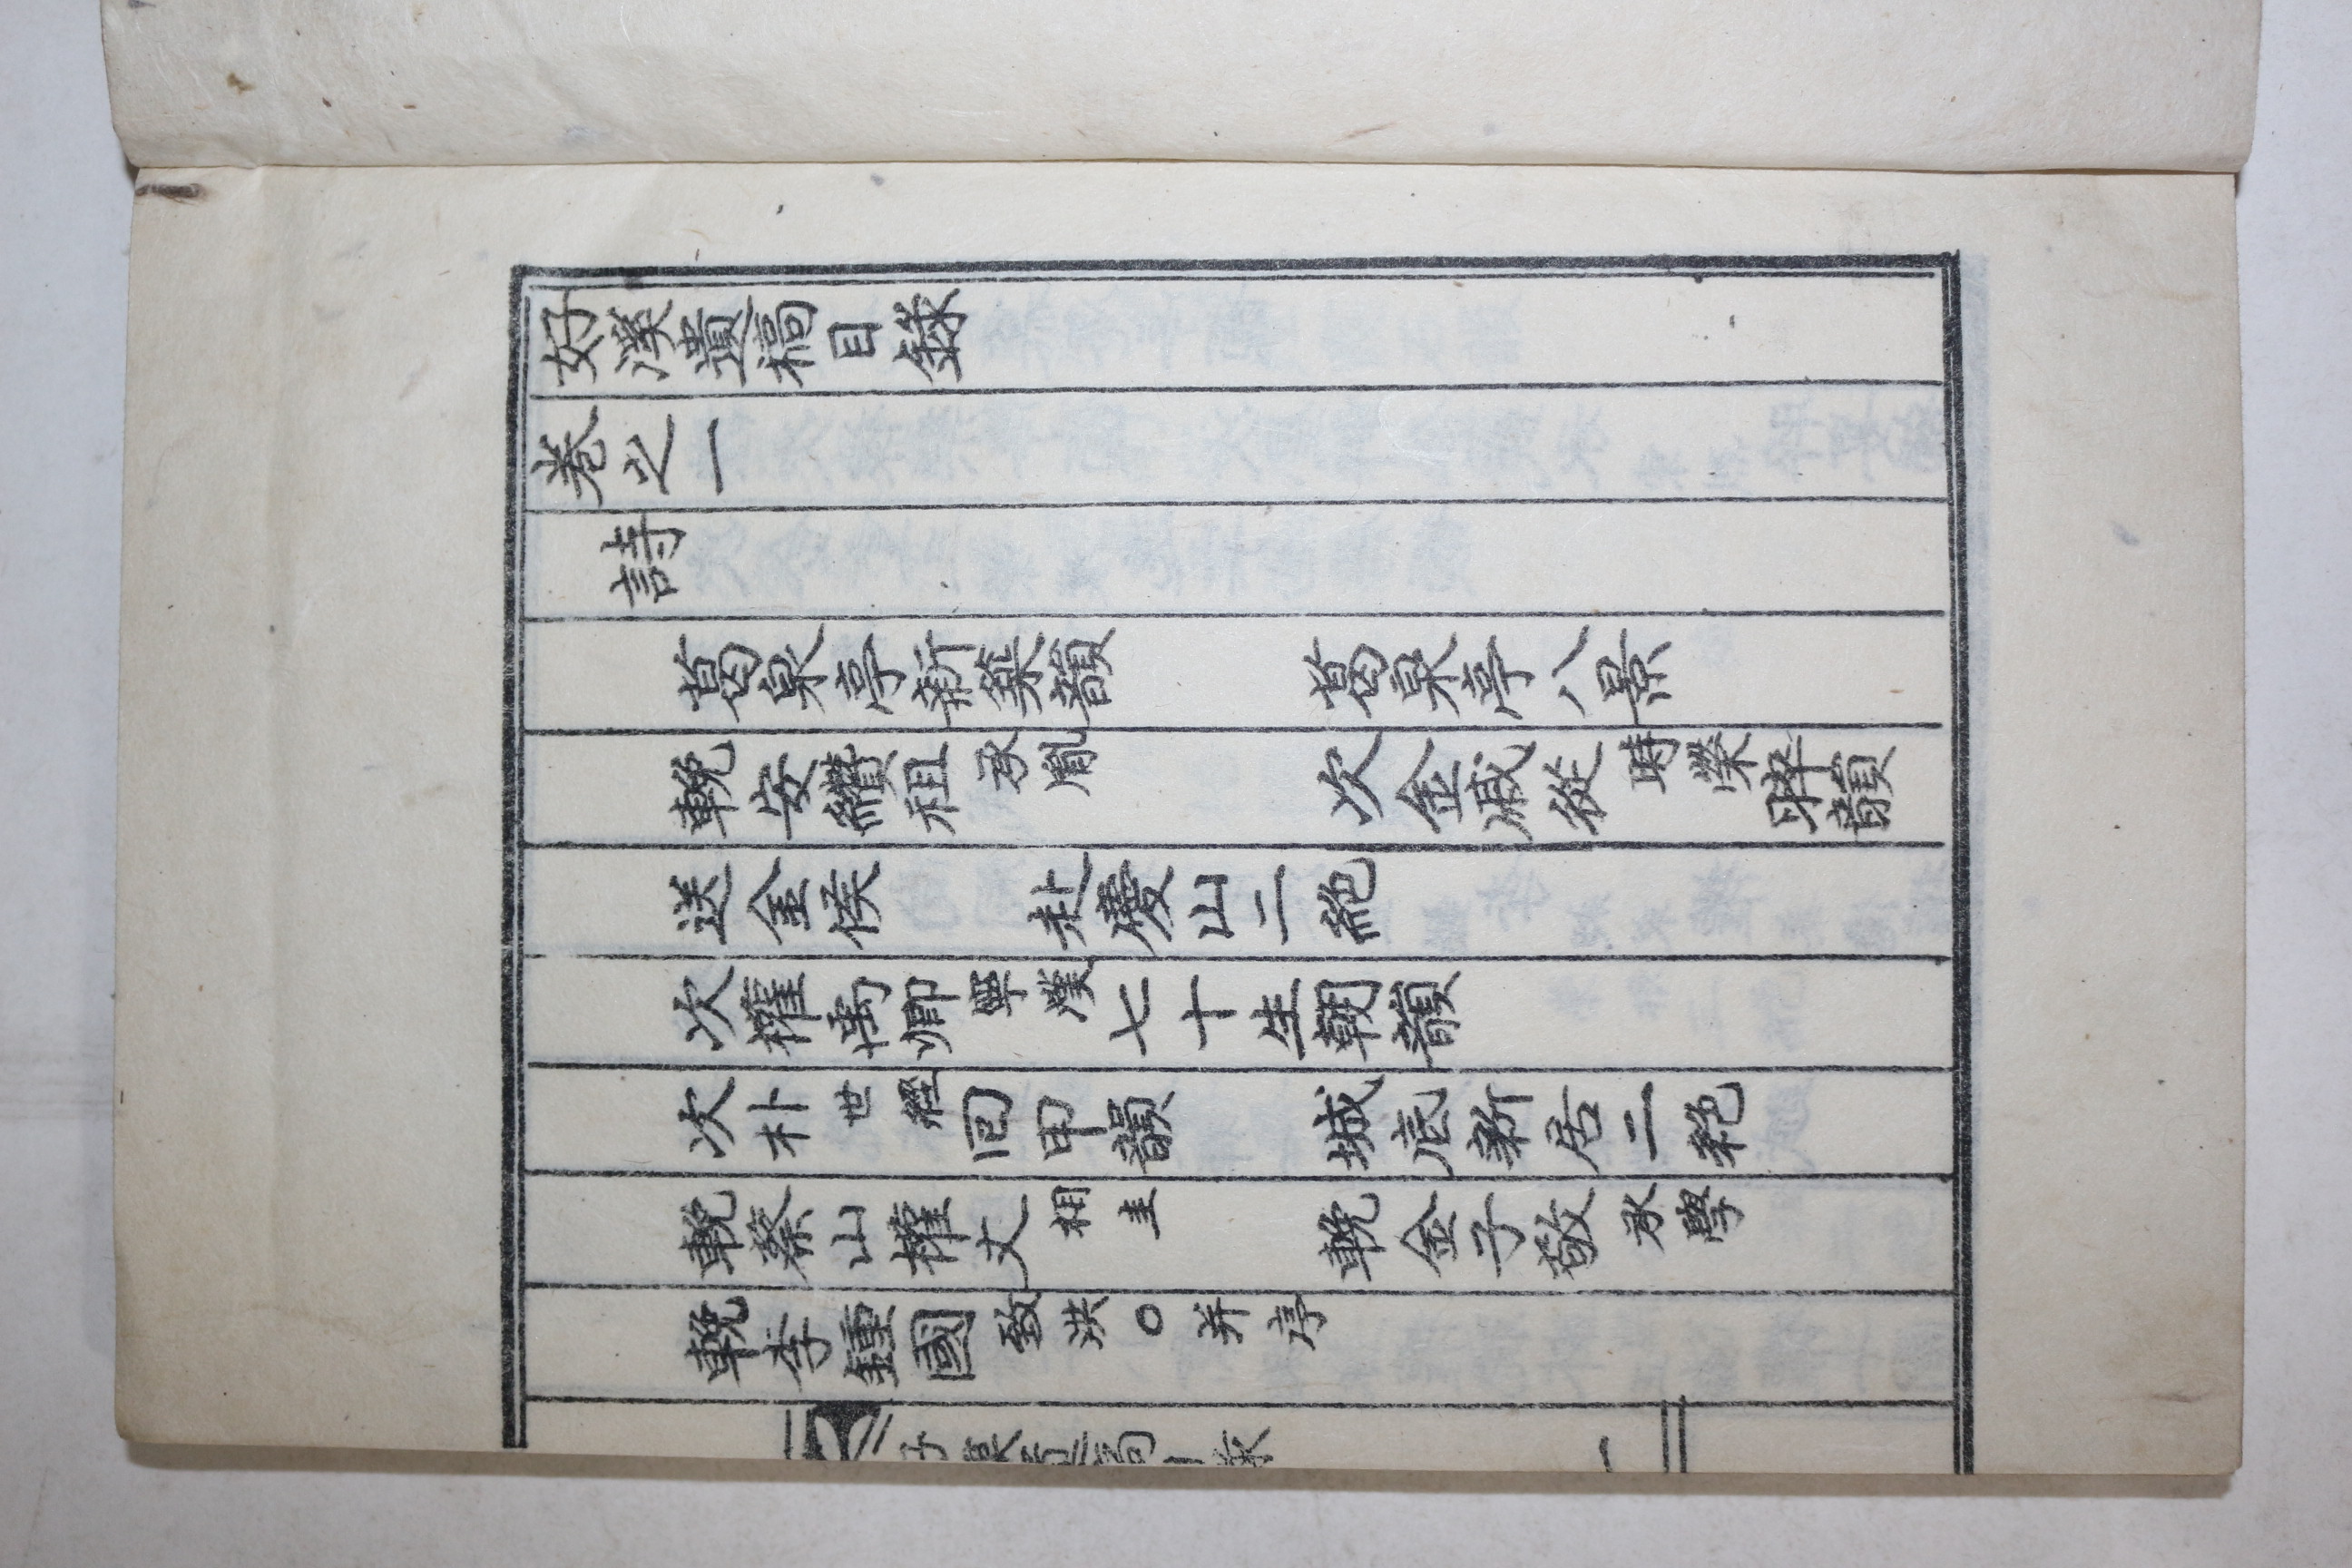 好溪遺稿目錄
卷之一
詩
葛泉亭新築韻 葛泉亭八景
輓安纘祖承胤 次金戚從時榮晬韻
送金侯 赴慶山二絶
次權 卿畢煥七十生朝韻
次朴世經回甲韻 城底新居二絶
輓蔡山權丈相圭 輓金子敬承學
輓李鍾國致洪○并序